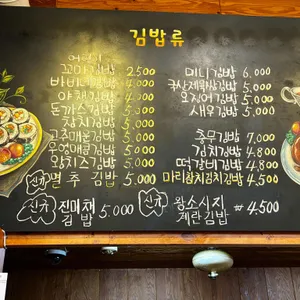 김밥류
어린이
꼬마김밥 2.500
바비큐김밥 4.000
야채김밥 4.000
돈까스김밥 5.000
참치김밥 5.000
고추매운김밥 5.000
우엉매콤김밥 5.000
왕치즈김밥 5.000
신규 멸추김밥 5.000
신규 진미채 김밥 5.000
미니김밥 6.000
오징어김밥 5.000
새우김밥 5.000
충무김밥 7.000
김치김밥 4.800
떡갈비김밥 4.800
마리참치김치김밥 4.500
신규 왕소시지 계란김밥 # 4.500